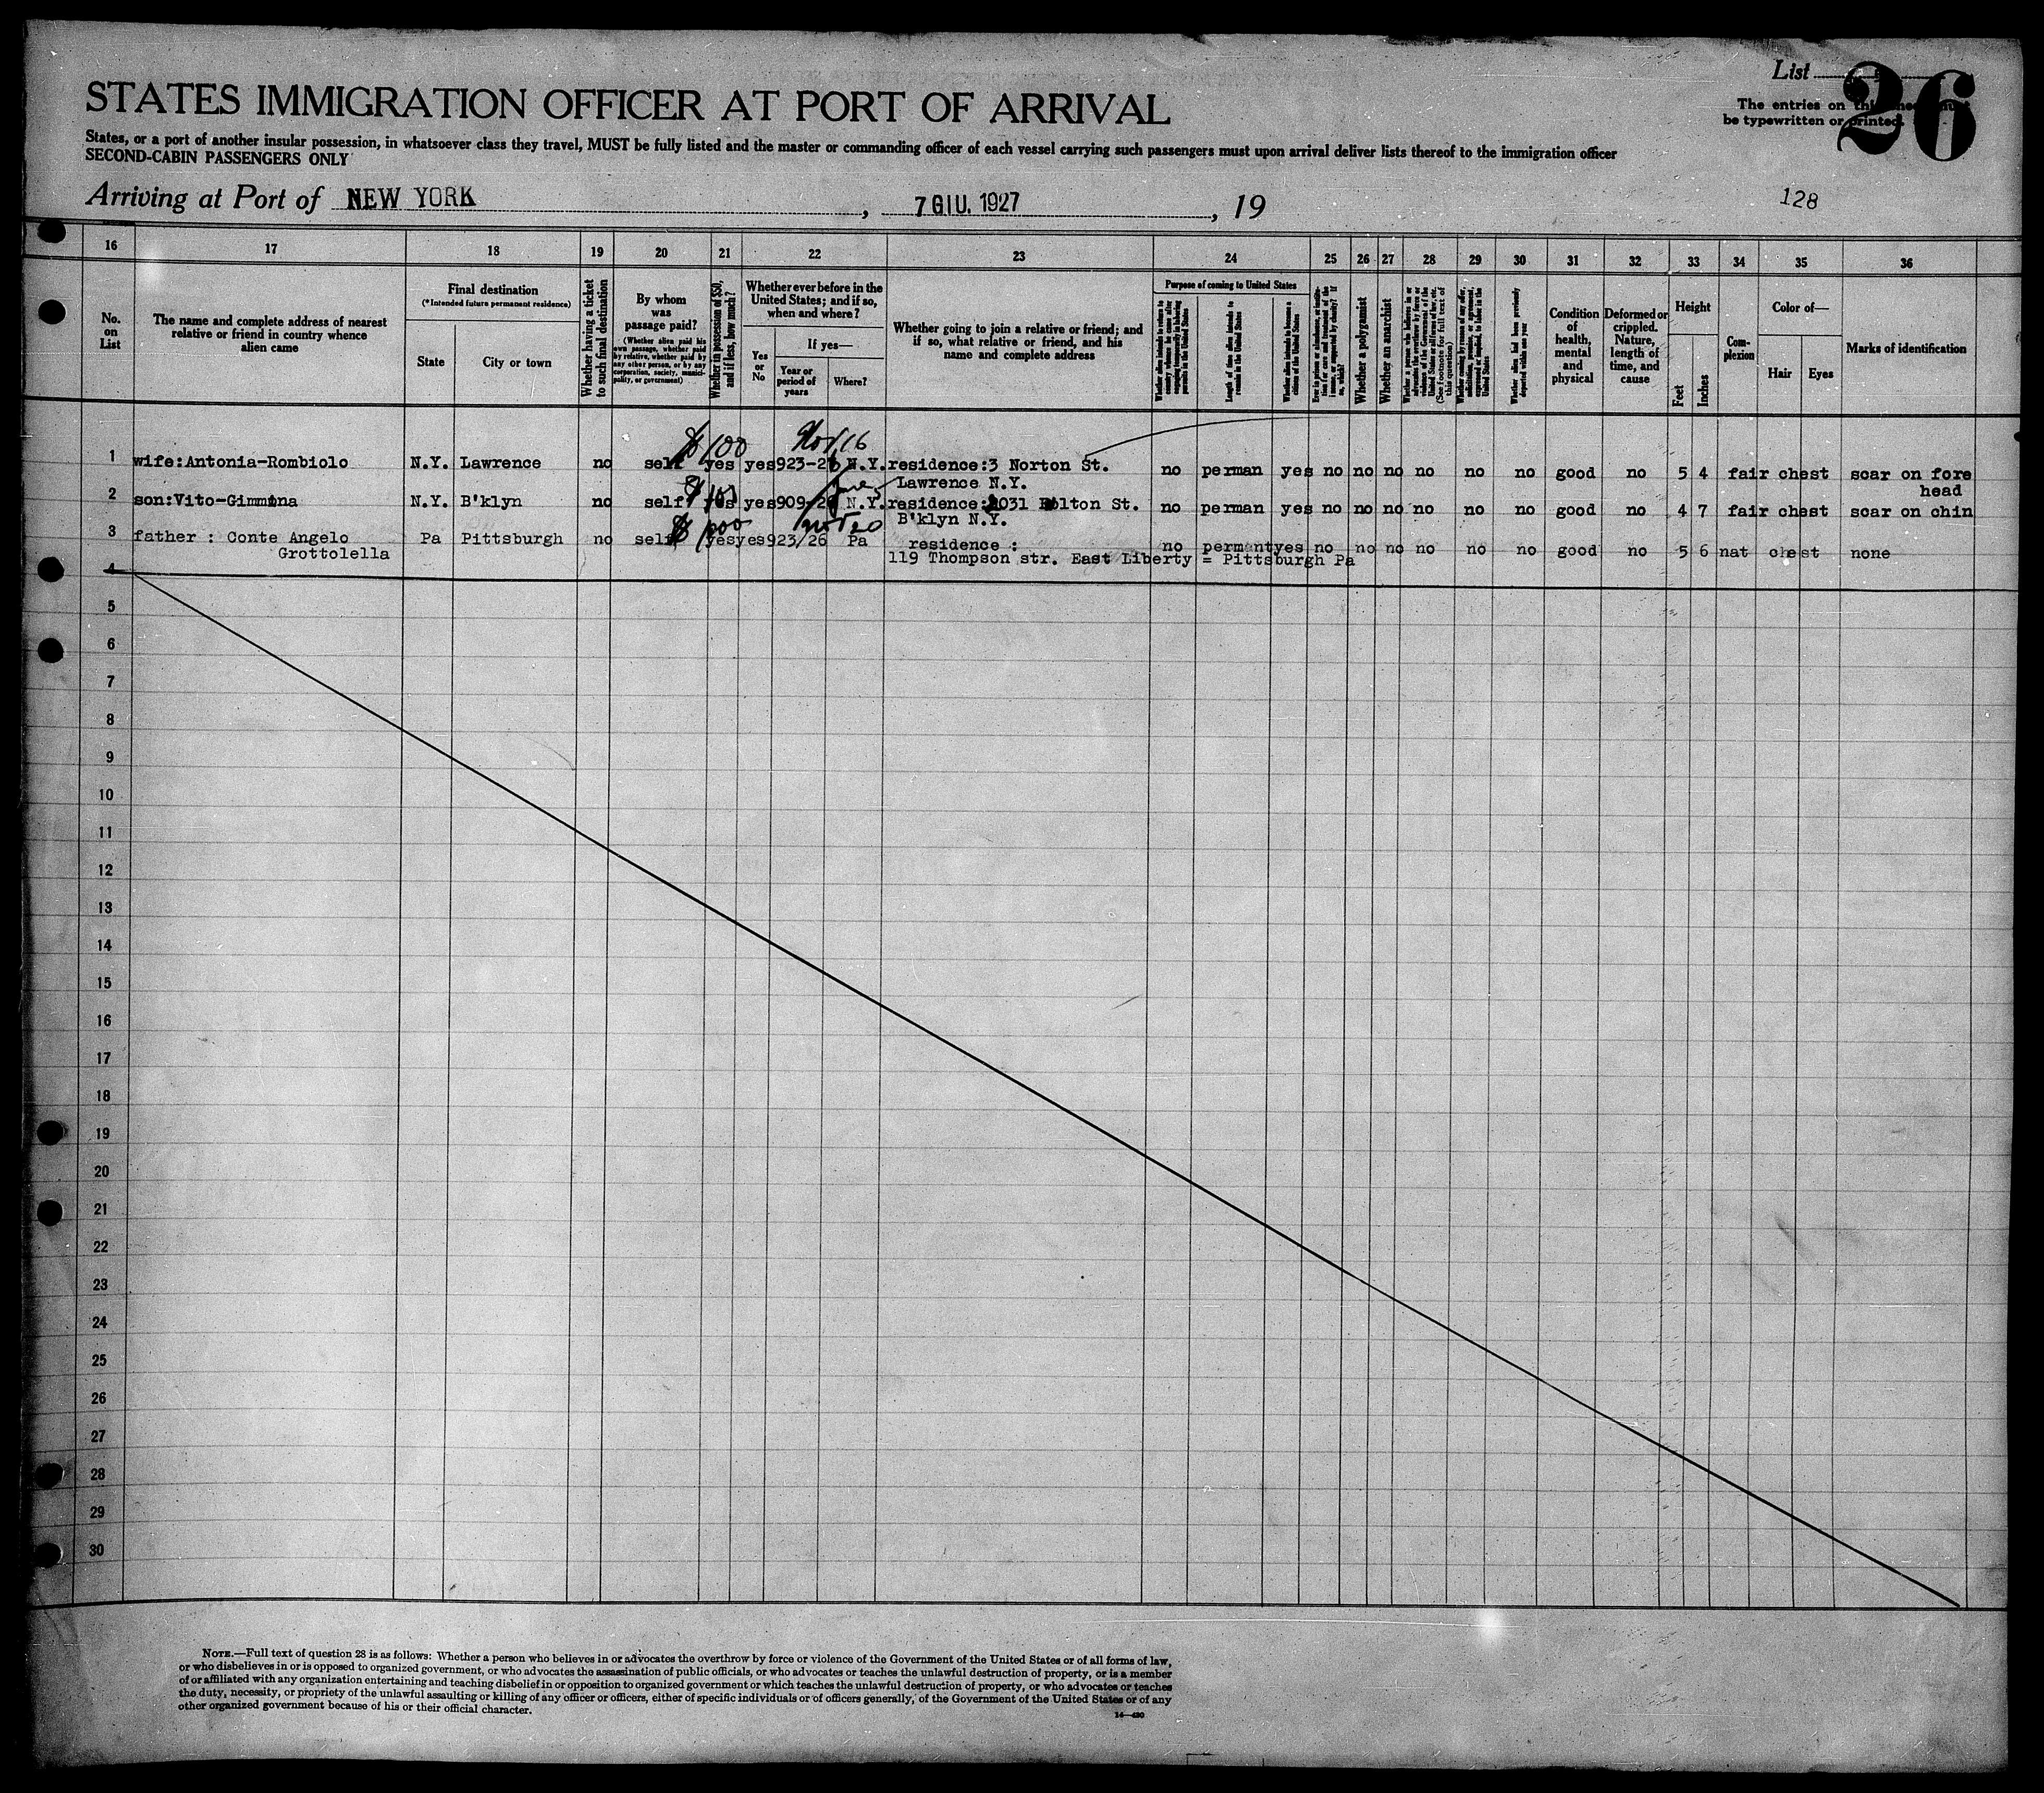 List
26
The entries on this sheet must
be typewritten or printed.
STATES IMMIGRATION OFFICER AT PORT OF ARRIVAL
States, or a port of another insular possession, in whatsoever class they travel, MUST be fully listed and the master or commanding officer of each vessel carrying such passengers must upon arrival deliver lists thereof to the immigration officer
SECOND-CABIN PASSENGERS ONLY
Arriving at Port of NEW YORK, 7 GIU. 1927, 19
128
16 17 18 19 20 21 22 23 24 25 26 27 28 29 30 31 32 33 34 35 36
No. on List
The name and complete address of nearest relative or friend in country whence alien came
Final destination
(*Intended future permanent residence)
State
City or town
Whether having a ticket to such final destination
By whom was passage paid?
(Whether alien paid his own passage, whether paid by relative, whether paid by any other person, or by any corporation, society, municipality, or government)
Whether in possession of $50, and if less, how much?
Whether ever before in the United States; and if so, when and where?
Yes or No
If yes—
Year or period of years
Where?
Whether going to join a relative or friend; and if so, what relative or friend, and his name and complete address
Purpose of coming to United States
Length of time alien intends to remain in the United States
Whether alien intends to become a citizen of the United States
Whether a polygamist
Whether an anarchist
Condition of health, mental and physical
Deformed or crippled. Nature, length of time, and cause
Height
Feet
Inches
Complexion
Color of—
Hair
Eyes
Marks of identification
$100 Nov 16
1 wife:Antonia-Rombiolo N.Y. Lawrence no self yes yes 923-26 N.Y. residence:3 Norton St. no perman yes no no no no no no good no 5 4 fair chest scar on fore
Lawrence N.Y. head
2 son:Vito-Gimmina N.Y. B'klyn no self yes yes 909-26 N.Y. residence: 2031 Bolton St. no perman yes no no no no no no good no 4 7 fair chest scar on chin
B'klyn N.Y.
3 father : Conte Angelo Pa Pittsburgh no self yes yes 923/26 Pa residence : no permant yes no no no no no no good no 5 6 nat chest none
Grottolella 119 Thompson str. East Liberty = Pittsburgh Pa
4
5
6
7
8
9
10
11
12
13
14
15
16
17
18
19
20
21
22
23
24
25
26
27
28
29
30
NOTE.—Full text of question 28 is as follows: Whether a person who believes in or advocates the overthrow by force or violence of the Government of the United States or of all forms of law,
or who disbelieves in or is opposed to organized government, or who advocates the assassination of public officials, or who advocates or teaches the unlawful destruction of property, or is a member
of or affiliated with any organization entertaining and teaching disbelief in or opposition to organized government or which teaches the unlawful destruction of property, or who advocates or teaches
the duty, necessity, or propriety of the unlawful assaulting or killing of any officer or officers, either of specific individuals or of officers generally, of the Government of the United States or of any
other organized government because of his or their official character.
14—430